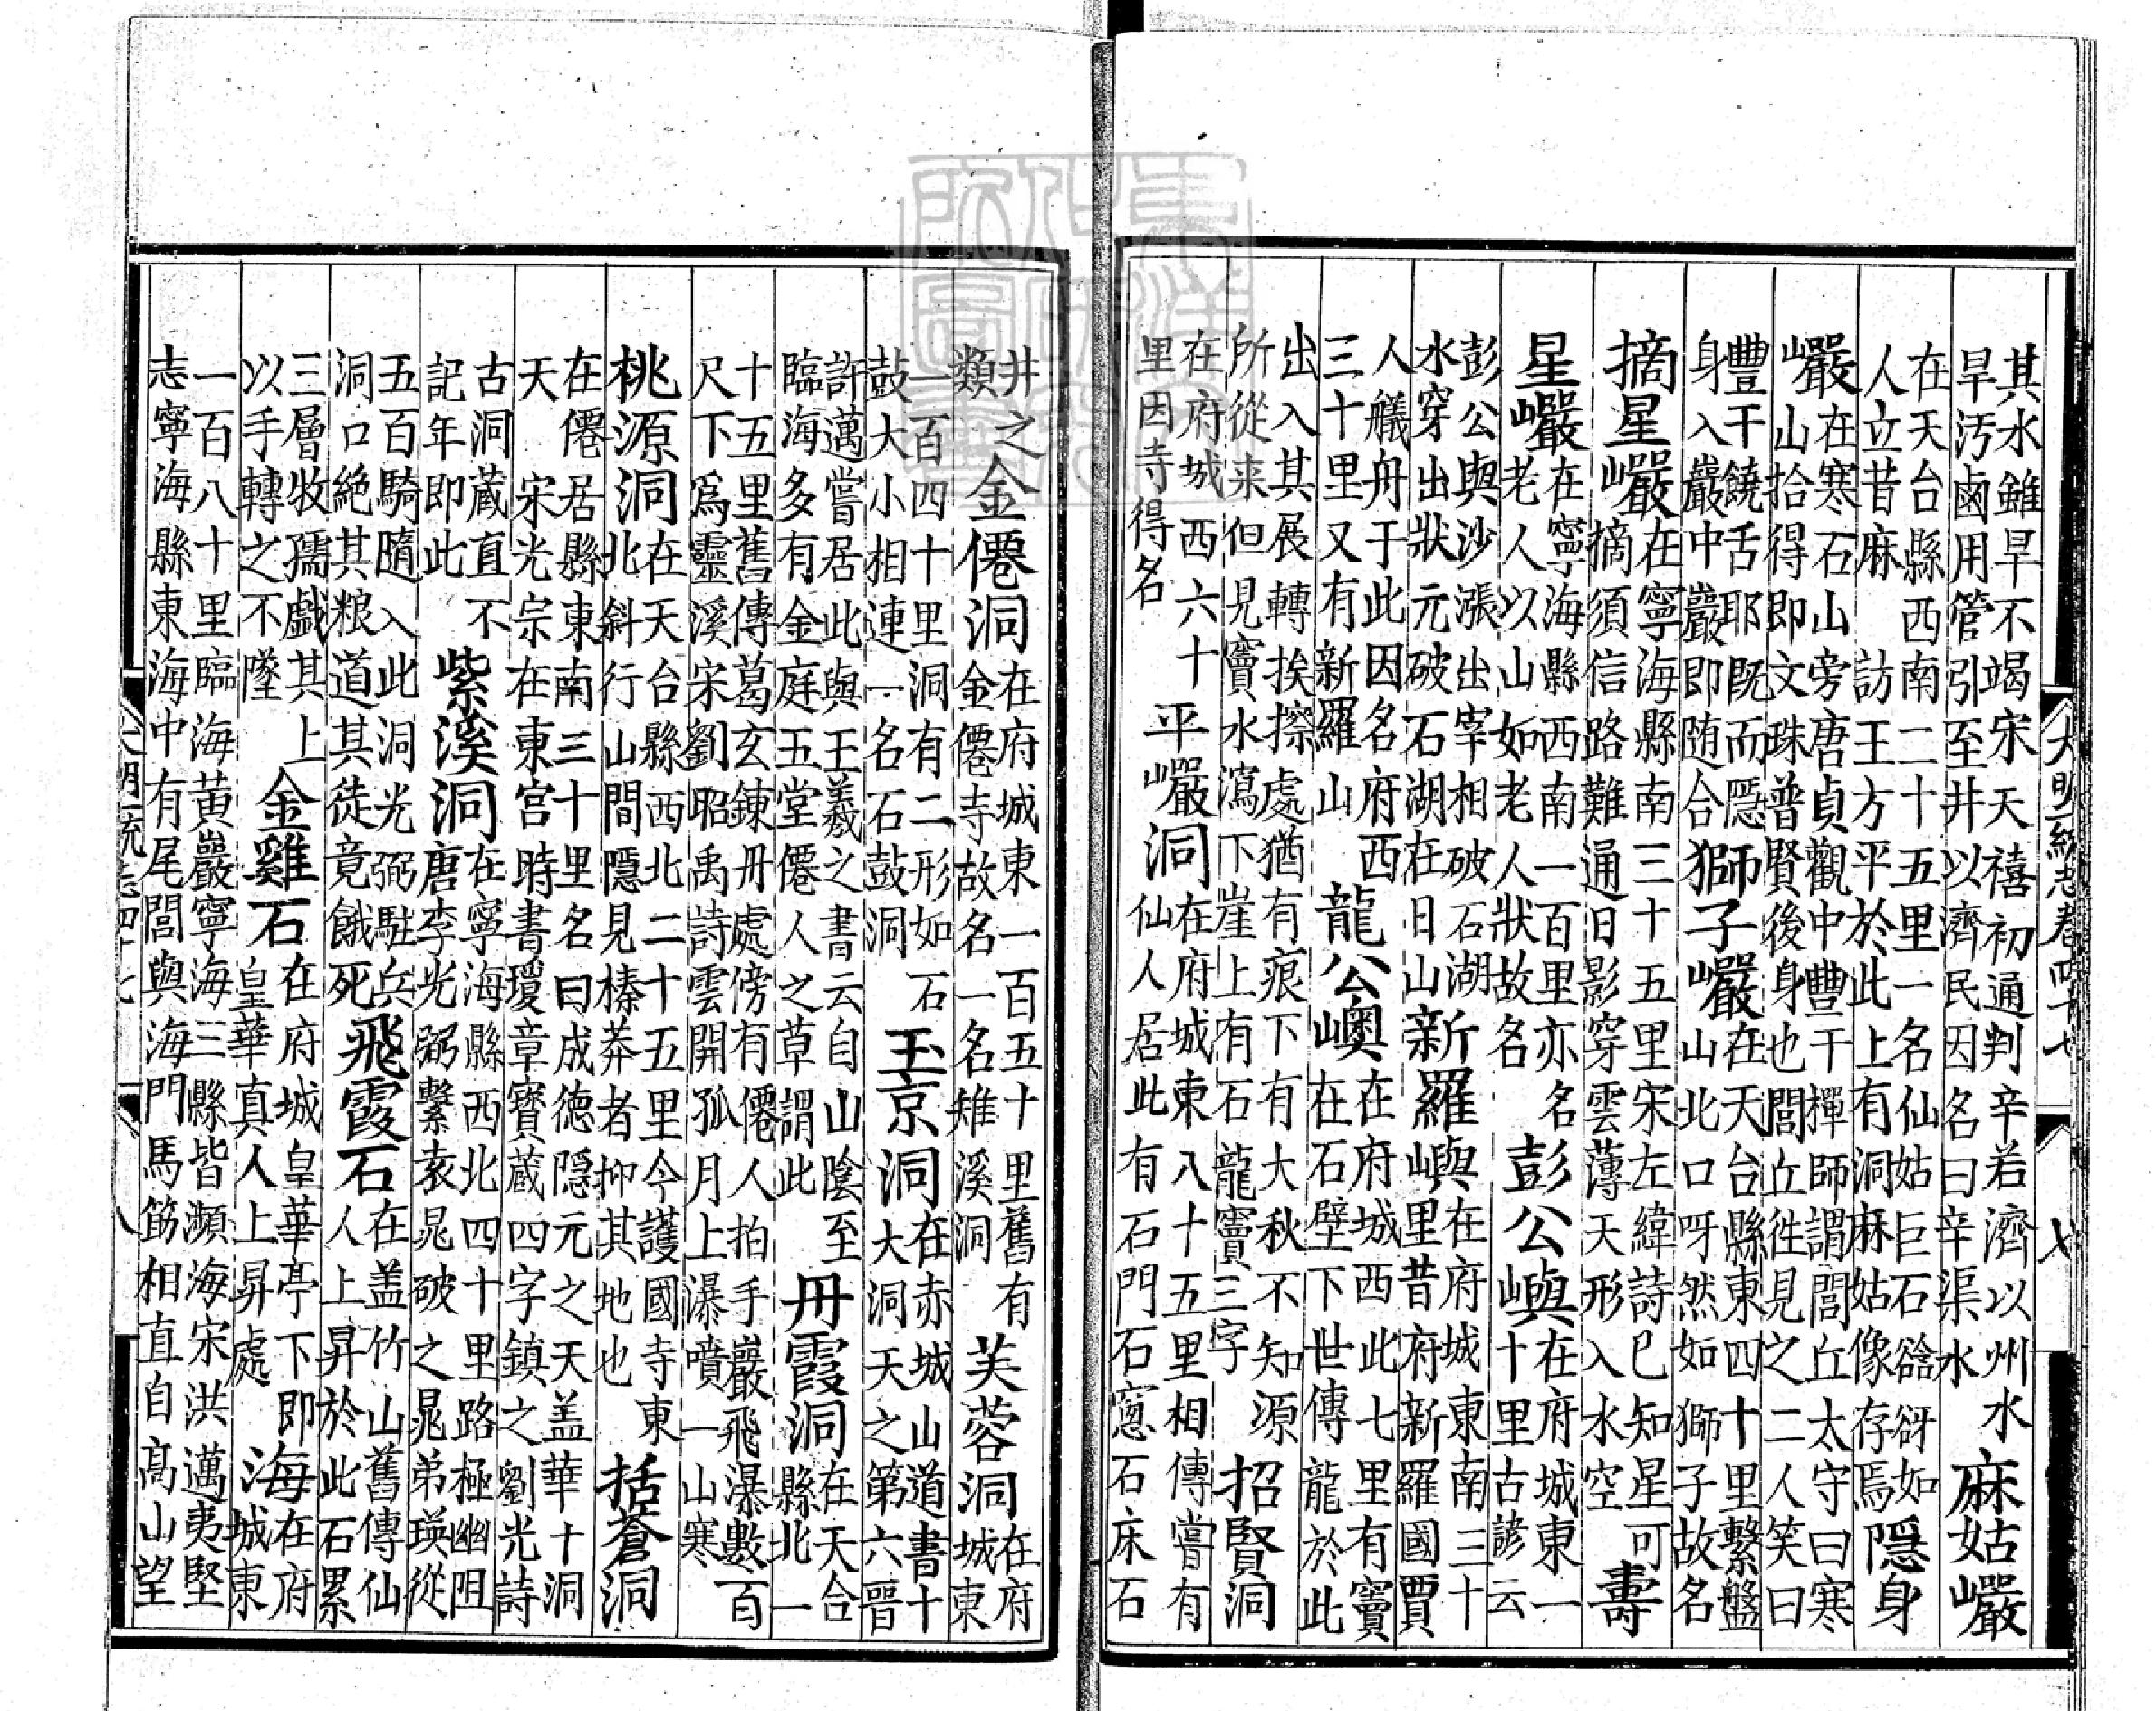 大明一統志卷四十七
其水雖旱不竭宋天禧初通判辛若濟以州水
旱汚鹵用管引至井以濟民因名曰辛渠水
麻姑巖
在天台縣西南二十五里一名仙姑巨石谽谺如
人立昔麻 訪王方平於此上有洞麻姑像存焉
隱身
巖
在寒石山旁唐貞觀中豐干禪師謂閭丘太守曰寒
山拾得即文殊普賢後身也閭丘徃見之二人笑曰
豐干饒舌耶既而隱
身入巖中巖即随合
獅子巖
在天台縣東四十里繫盤
山北口呀然如獅子故名
摘星巖
在寧海縣南三十五里宋左緯詩已知星可
摘須信路難通日影穿雲薄天形入水空
壽
星巖
在寧海縣西南一百里亦名
老人以山如老人狀故名
彭公嶼
在府城東一
十里古諺云
彭公與沙漲出宰相破石湖
水穿出狀元破石湖在日山
新羅嶼
在府城東南三十
里昔府新羅國賈
人艤舟于此因名府西
三十里又有新羅山
龍公嶴
在府城西此七里有竇
在石壁下世傳龍於此
出入其展轉挨擦處猶有痕下有大秋不知源
所從来但見竇水瀉下崖上有石龍竇三字
招賢洞
在府城西六十
里因寺得名
平巖洞
在府城東八十五里相傳嘗有
仙人居此有石門石窻石床石
井之
類
金僊洞
在府城東一百五十里舊有
金僊寺故名一名雉溪洞
芙蓉洞
在府
城東
一百四十里洞有二形如石
鼓大小相連一名石鼓洞
玉京洞
在赤城山道書十
大洞天之第六晉
許邁嘗居此與王羲之書云自山陰至
臨海多有金庭五堂僊人之草謂此
丹霞洞
在天台
縣北一
十五里舊傳葛玄鍊丹處傍有僊人拍手巖飛瀑數百
尺下爲靈溪宋劉昭禹詩雲開孤月上瀑噴一山寒
桃源洞
在天台縣西北二十五里今護國寺東
北斜行山間隱見榛莽者抑其地也
括蒼洞
在僊居縣東南三十里名曰成德隱元之天盖華十洞
天 宋光宗在東宮時書瓊章寶蔵四字鎮之劉光詩
古洞蔵直不
記年即此
紫溪洞
在寧海縣西北四十里路極幽阻
唐李光弼繫袁晁破之晁弟瑛從
五百騎隨入此洞光弼駐兵
洞口絶其粮道其徒竟餓死
飛霞石
在盖竹山舊傳仙
人上昇於此石累
三層牧孺戲其上
以手轉之不墜
金雞石
在府城皇華亭下即
皇華真人上昇處
海
在府
城東
一百八十里臨海黃巖寧海三縣皆瀕海宋洪邁夷堅
志寧海縣東海中有尾閭與海門馬筯相直自高山望